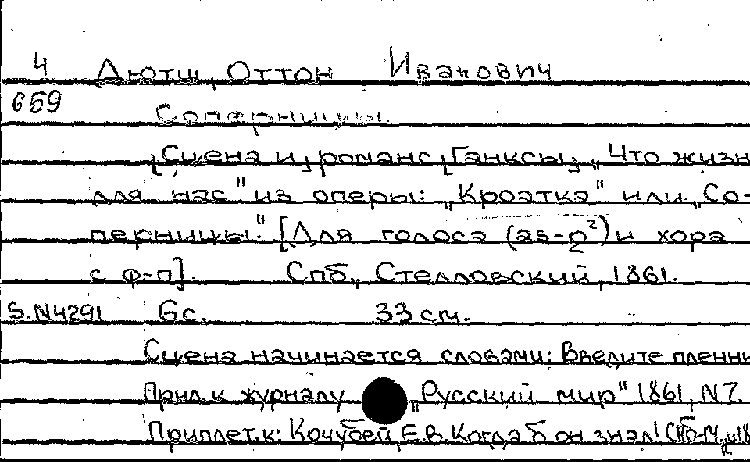 4 Дютш, Оттон Иванович
659 Соперницы.
[Сцена и] романс [Ганксы] „Что жизнь
для нас" из оперы: „Кроатка" или „Со-
перницы." [Для голоса (as-g²) и хора
с ф-п]. Спб., Стелловский, 1861.
S.N4291 6с. 33 см.
Сцена начинается словами: Введите пленни
Прил. к журналу „Русский мир" 1861, N7.
Приплет. к: Кочубей, Е.В. Когда б он знал!